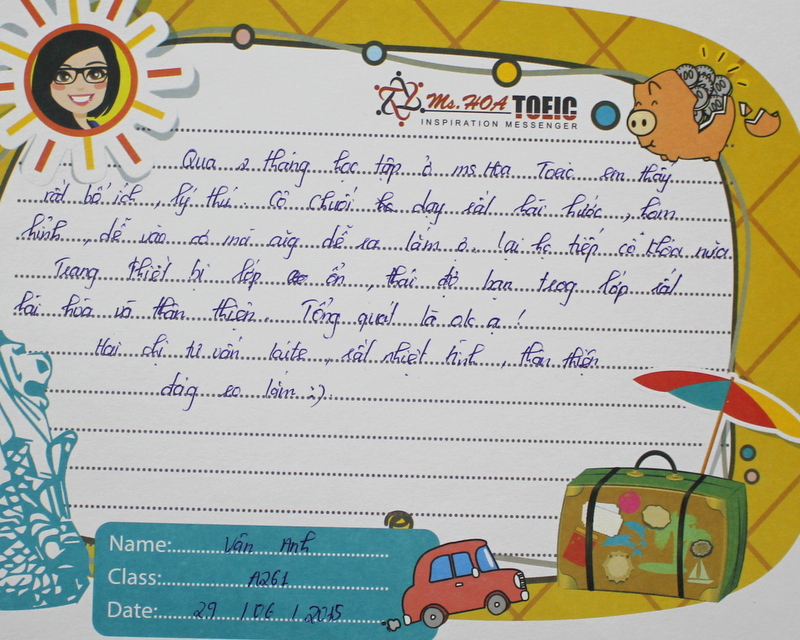 Ms. HOA TOEIC
INSPIRATION MESSENGER
Qua 2 tháng học tập ở ms.Hoa Toeic em thấy
rất bổ ích, lý thú. Cô chuối dạy rất hài hước, hóm
hỉnh, dễ vào có mà cũg dễ ra lắm ạ. lại học tiếp cô khóa nữa.
Trang thiết bị lớp ổn, thái độ bạn trog lớp rất
hài hòa và thân thiện. Tổng quát là ok ạ!
Hai chị tư vấn cute, rất nhiệt tình, thân thiện
đág eo lắm :).
Name: Vân Anh
Class: A261
Date: 29 / 06 / 2015